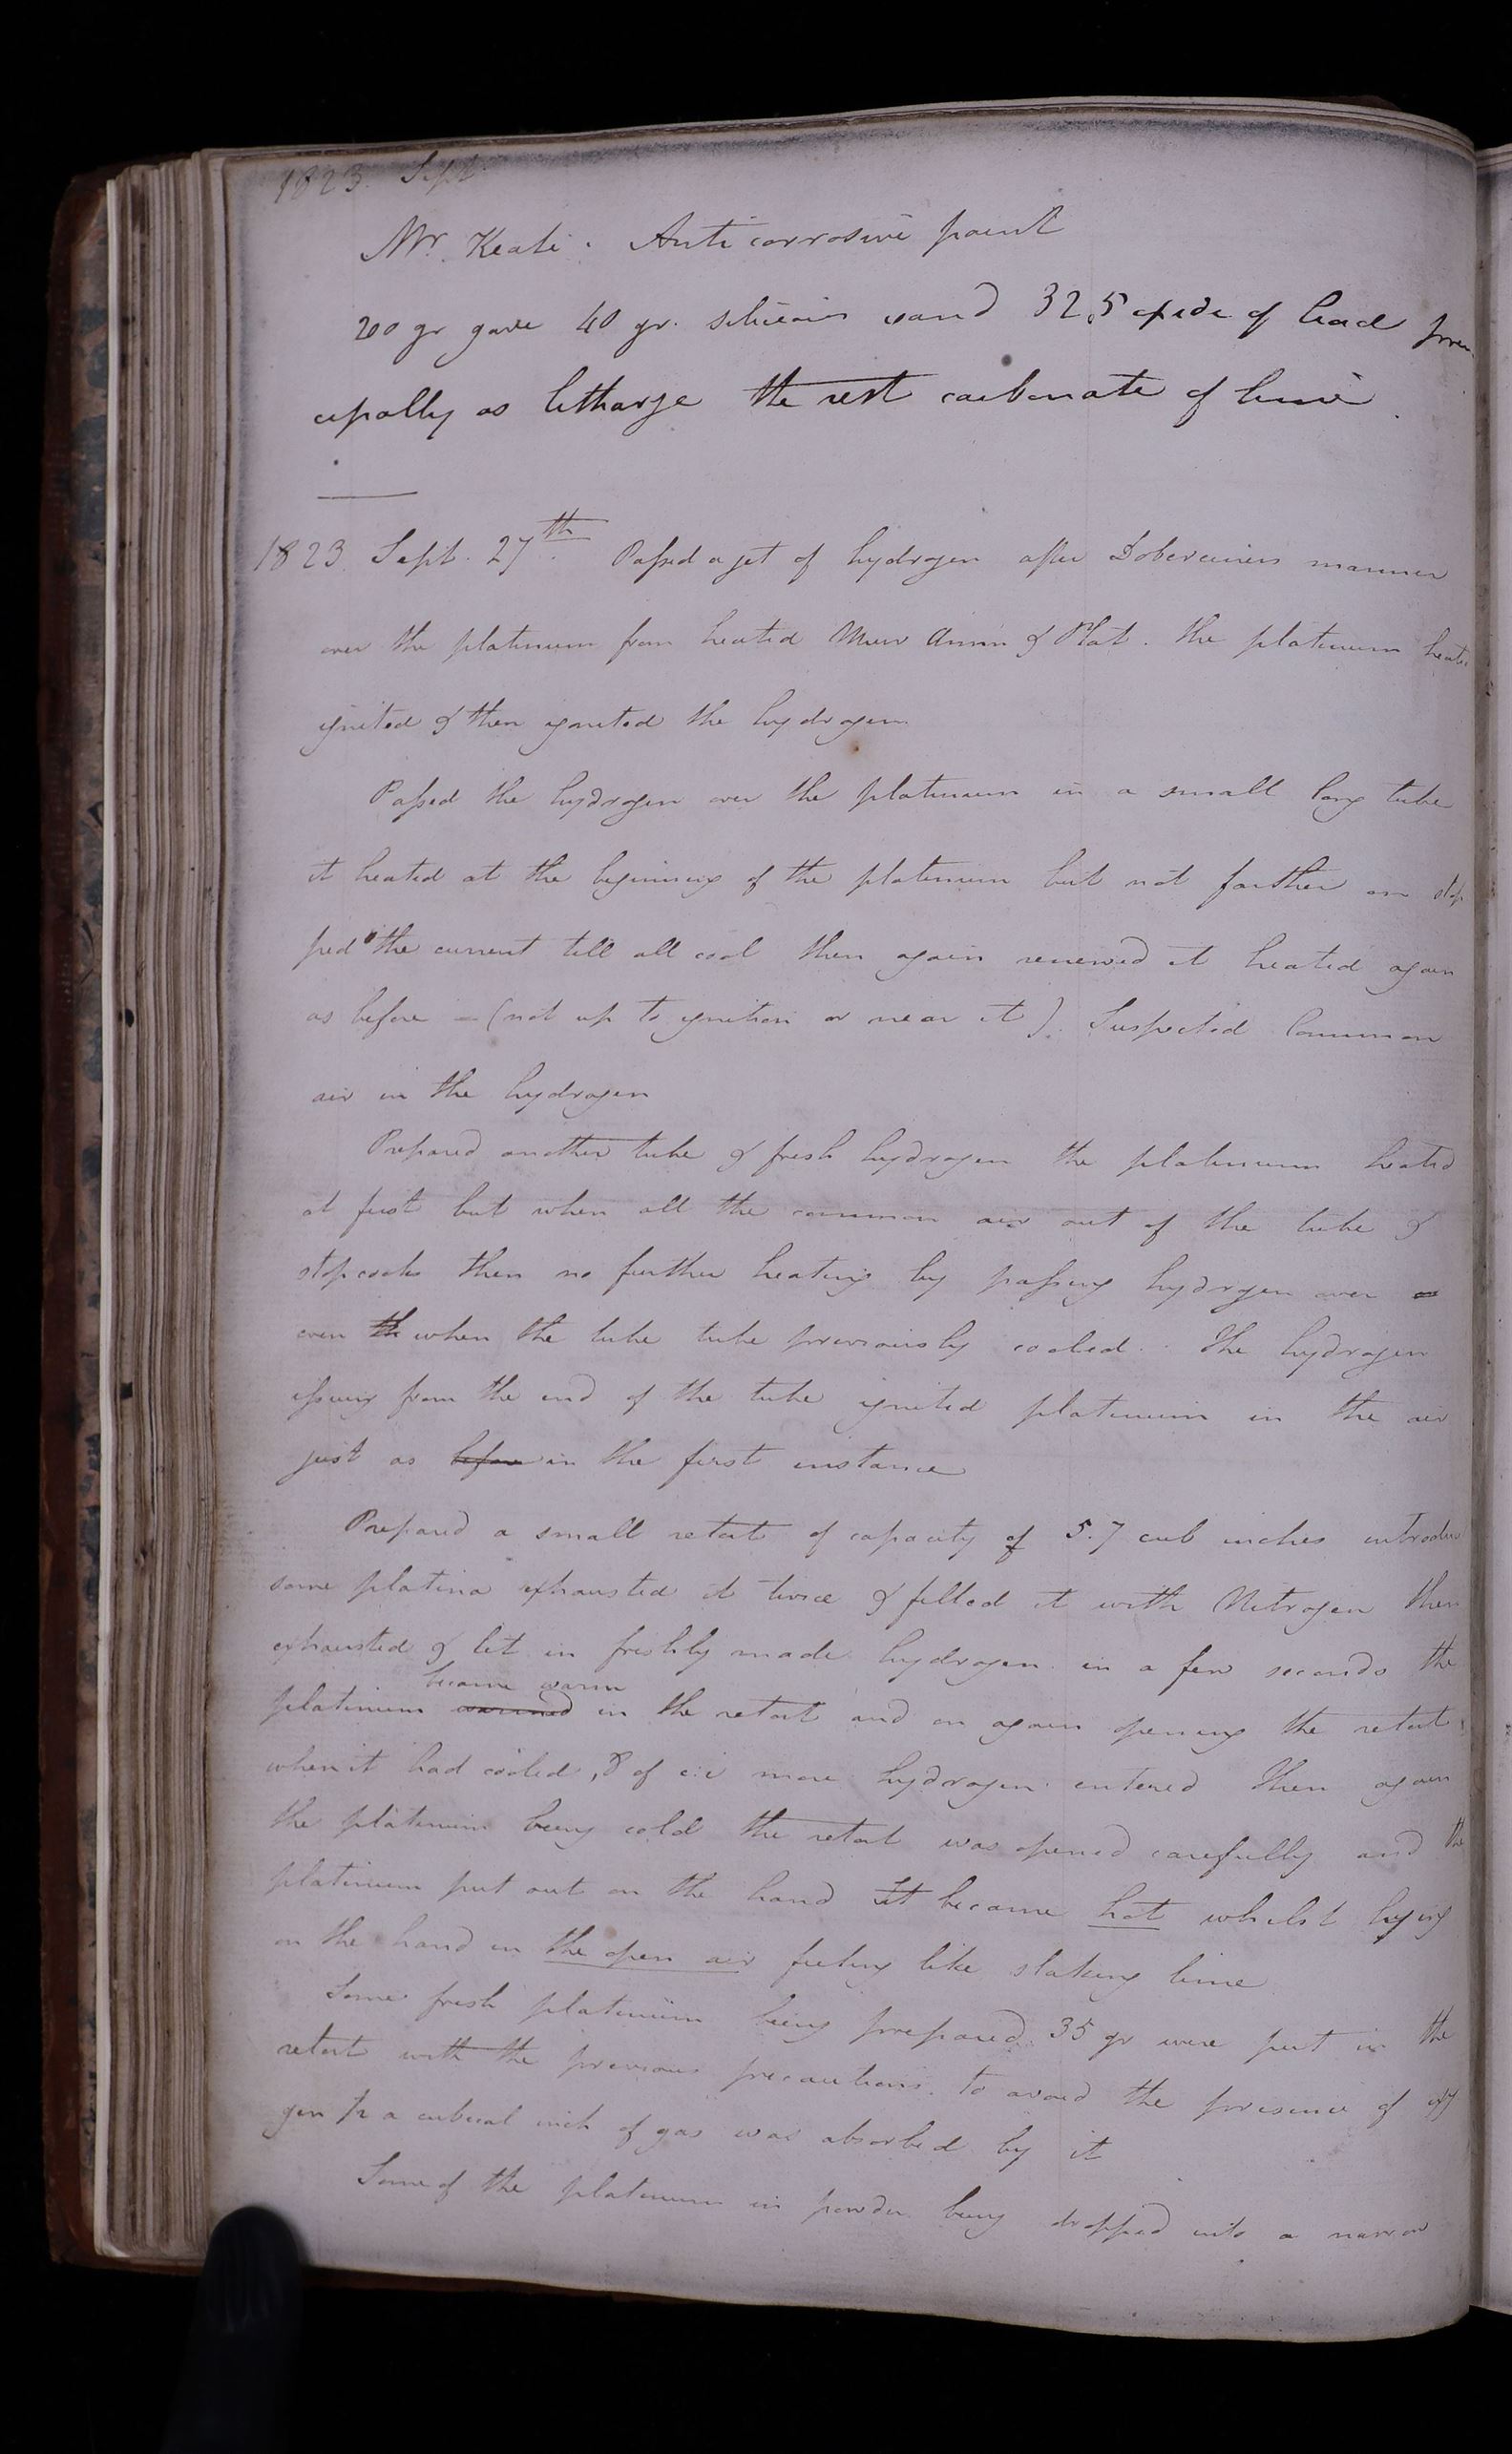 1823. Sept.
Mr. Keate. Anti corrosive paint
200 gr gave 40 gr. silicious sand 32.5 oxide of lead prin
cipally as litharge the rest carbonate of lime.
1823. Sept. 27th. Passed a jet of hydrogen after Dobereiners manner
over the platinum from heated Mur Amm & Plat. the platinum heated
ignited & then ignited the hydrogen
Passed the hydrogen over the platinum in a small long tube
it heated at the beginning of the platinum but not farther on stop
ped the current till all cool then again renewed it heated again
as before - (not up to ignition or near it). Suspected Common
air in the hydrogen
Prepared another tube & fresh hydrogen the platinum heated
at first but when all the common air out of the tube &
stop cocks then no further heating by passing hydrogen over
even th when the tube tube previously cooled. The hydrogen
issuing from the end of the tube ignited platinum in the air
just as before in the first instance
Prepared a small retort of capacity of 5.7 cub inches introduced
some platina exhausted it twice & filled it with Nitrogen then
exhausted & let in freshly made hydrogen in a few seconds the
became warm
platinum warmed in the retort and on again opening the retort
when it had cooled, 8 of c:i more hydrogen entered then again
the platinum being cold the retort was opened carefully and the
platinum put out on the hand It became hot whilst lying
on the hand in the open air feeling like slaking lime
Some fresh platinum being prepared 35 gr were put in the
retort with the previous precautions to avoid the presence of oxy
gen a cubical inch of gas was absorbed by it
Some of the platinum in powder being dropped into a narrow